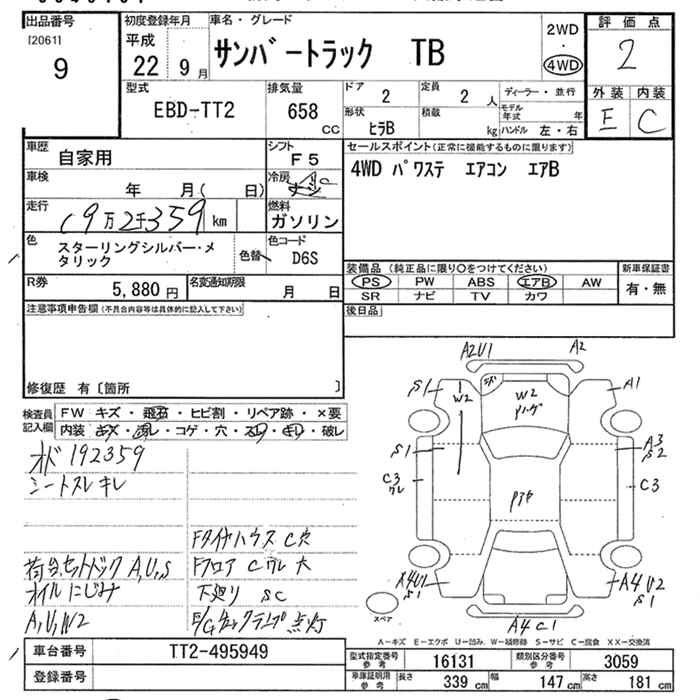 出品番号
[2061]
9
初度登録年月
平成
22年 9月
車名・グレード
サンバートラック TB
2WD
・
4WD
評価点
2
外装 内装
E C
型式
EBD-TT2
排気量
658 cc
ドア 2
形状 ヒラB
定員 2 人
積載 kg
ディーラー・並行
モデル年式 年
ハンドル 左・右
車歴 自家用
シフト F5
車検 年 月( 日)
冷房 AC
走行 19万2千359 km
燃料 ガソリン
色 スターリングシルバー・メタリック
色替
色コード D6S
R券 5,880円
名変通知期限 月 日
セールスポイント(正常に機能するものに限ります)
4WD パワステ エアコン エアB
装備品(純正品に限り○をつけてください)
PS PW ABS エアB AW
SR ナビ TV カワ
新車保証書
有・無
後日品
注意事項申告欄(不具合内容等は具体的に記入して下さい)
修復歴 有〔箇所 〕
検査員記入欄
FW キズ・飛石・ヒビ割・リペア跡・×要
内装 キズ・汚レ・コゲ・穴・スレ・キレ・破レ
オド 192359
シートスレ キレ
FタイヤハウスC穴
荷台セットバックA,U,S
FフロアCクレ大
オイルにじみ
下廻り SC
A,U,W2
E/Gチェックランプ点灯
A2U1
A2
S1
W2
W2
A1
S1
A3
S2
C3
クレ
C3
A4U1
S1
A4U2
S1
A4C1
スペア
A-キズ E-エクボ U-凹み W-補修跡 S-サビ C-腐食 XX-交換済
車台番号 TT2-495949
登録番号
型式指定番号 参考 16131
類別区分番号 参考 3059
車庫証明用 参考 長さ 339 cm 幅 147 cm 高さ 181 cm